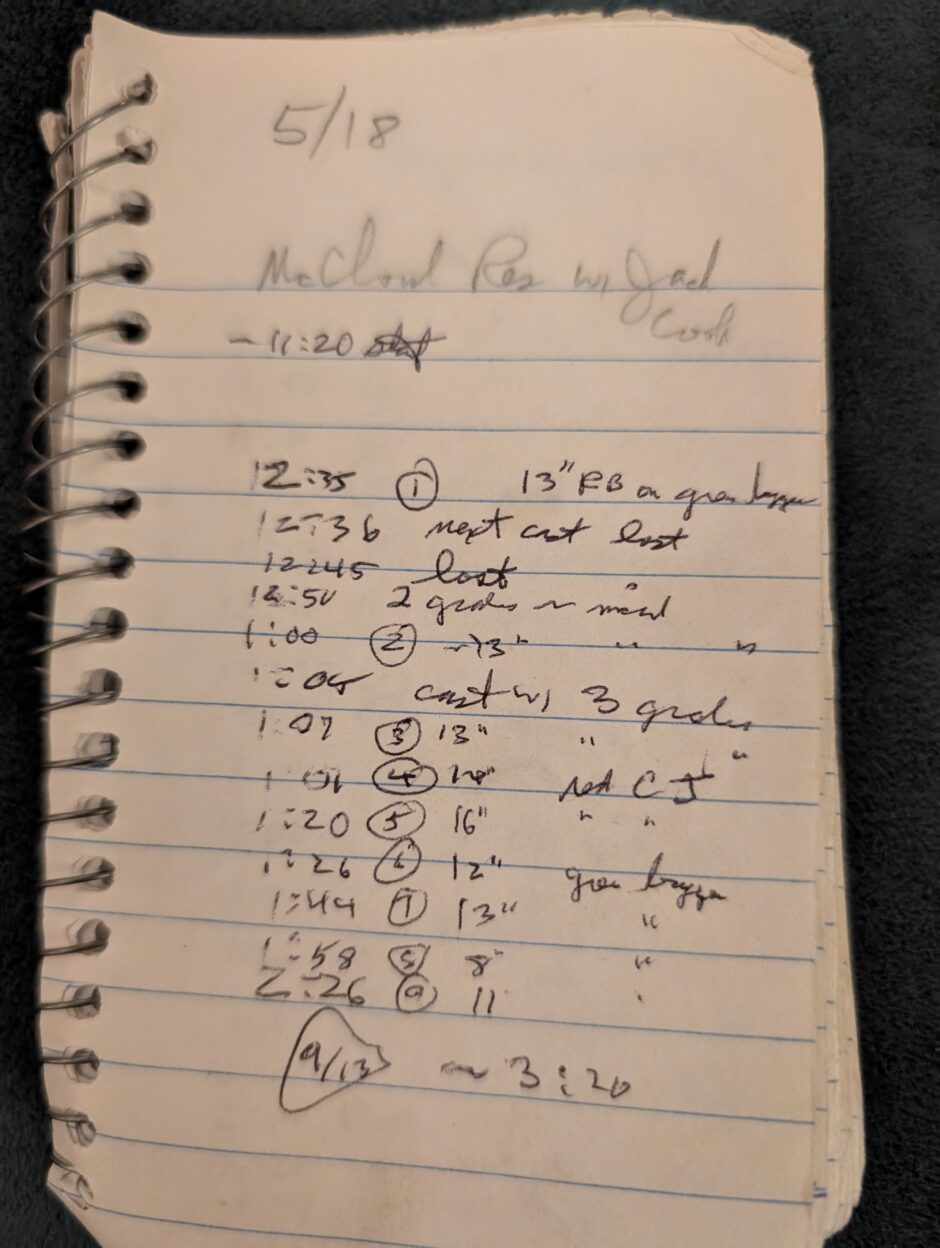 5/18
McCloud Res w/ Jack
Cook
~11:20 start
12:35 ① 13" RB on green bugger
12:36 next cast lost
12:45 lost
12:50 2 grabs
1:00 ② ~13" " "
1:05 cast w/ 3 grabs
1:07 ③ 13" " "
④ 14" red CJ
1:20 ⑤ 16" " "
1:26 ⑥ 12" green bugger
1:44 ⑦ 13" "
1:58 ⑧ 8" "
2:26 ⑨ 11 "
9/13 ~ 3:20